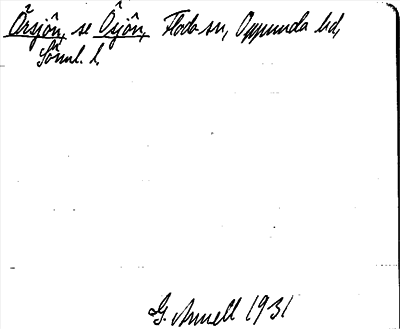 Örsjön, se Öijön, Floda sn, Oppunda hd,
Söml. l.
G. Annell 1931